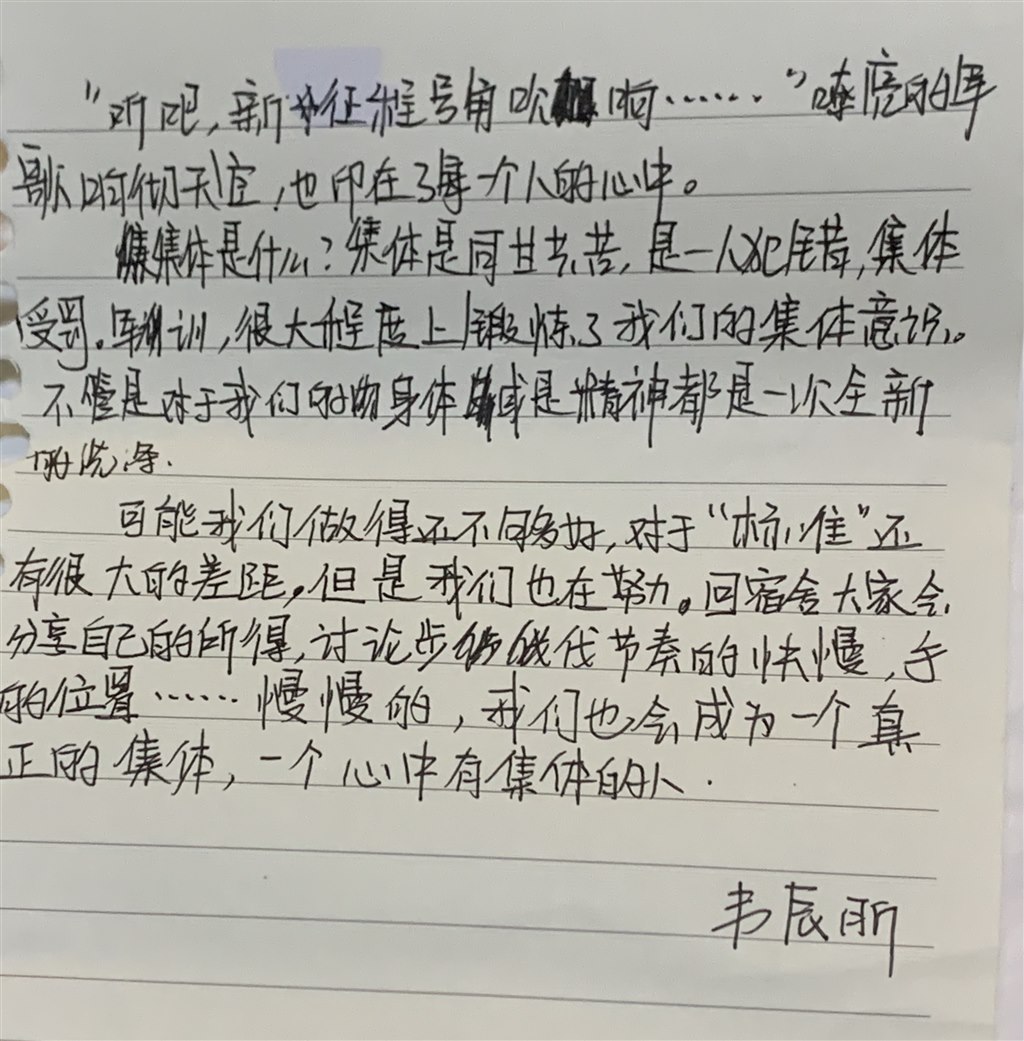 “听吧，新征程号角吹响……”嘹亮的军
歌响彻天宫，也印在了每一个人的心中。
集体是什么？集体是同甘共苦，是一人犯错，集体
受罚。军训，很大程度上锻炼了我们的集体意识。
不管是对于我们的身体或是精神都是一次全新
的洗涤.
可能我们做得还不够好，对于“标准”还
有很大的差距，但是我们也在努力。回宿舍大家会
分享自己的所得，讨论步伐节奏的快慢，手
的位置……慢慢的，我们也会成为一个真
正的集体，一个心中有集体的人.
韦辰昕